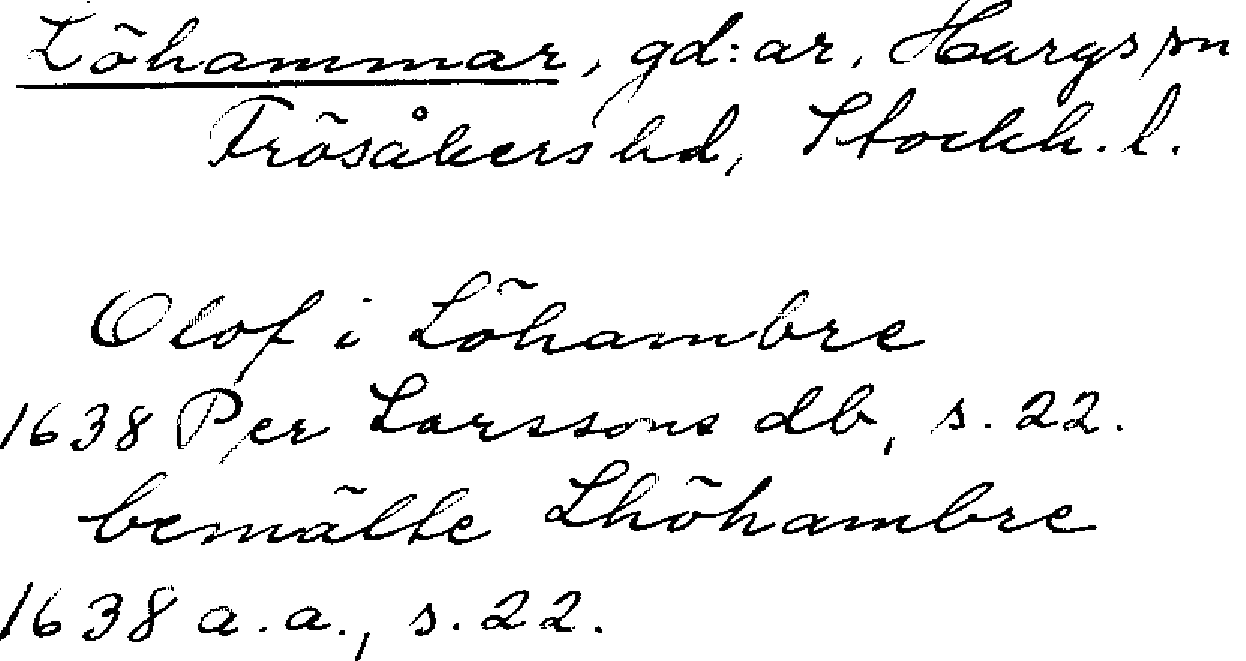 Löhammar, gd:ar, Hargs sn
Frösåkers hd, Stockh. l.
Olof i Löhambre
1638 Per Larssons db, s. 22.
bemälte Lhöhambre
1638 a.a., s. 22.